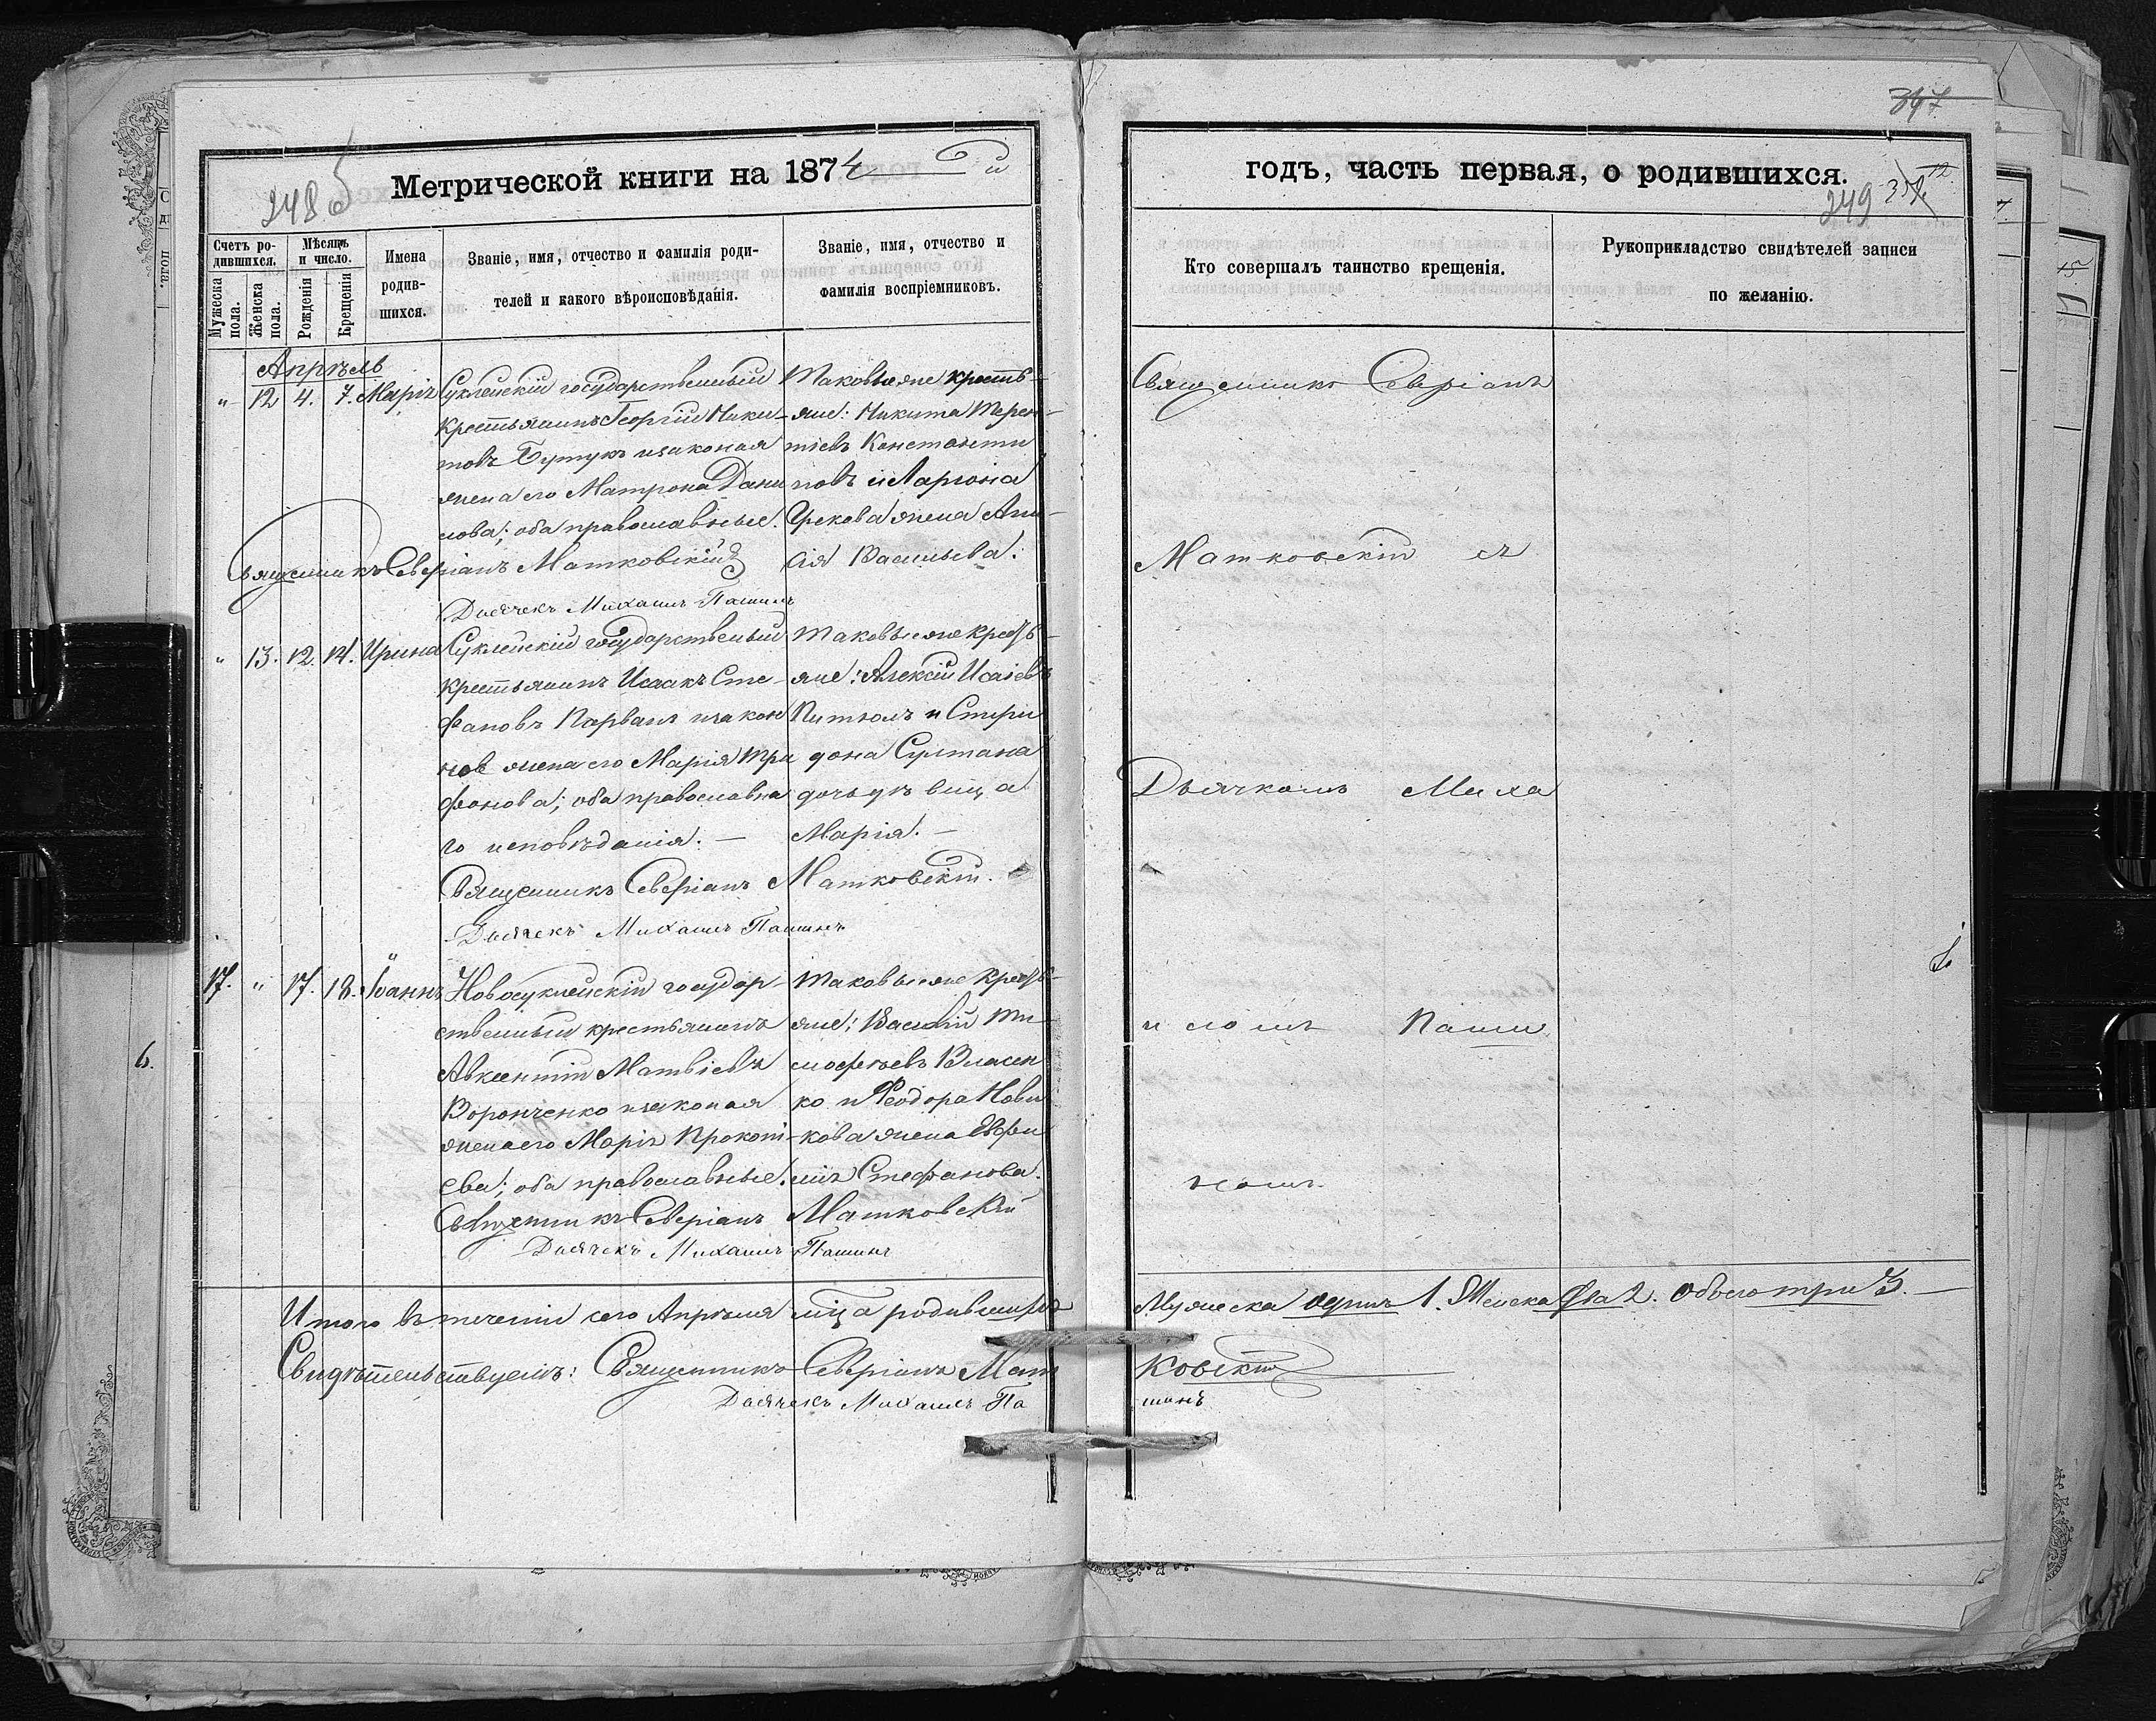 347
Метрической книги на 1874 й
годъ, часть первая, о родившихся.
248
249
12.
Счетъ родившихся.
Мѣсяцъ и число.
Имена родившихся.
Званіе, имя, отчество и фамилія родителей и какого вѣроисповѣданія.
Званіе, имя, отчество и фамилія воспріемниковъ.
Кто совершалъ таинство крещенія.
Рукоприкладство свидѣтелей записи по желанію.
Мужеска пола.
Женска пола.
Рожденія
Крещенія
Апрѣль
" 12 4. 7. Марія
Суклейскій государственный
крестьянинъ Георгій Ники-
товъ Бутукъ и законая
жена его Матрона Дани
лова; оба православные.
Таковыеже кресть-
яне: Никита Терен-
тіевъ Константи
новъ и Ларіона
Грекова жена Ани-
сія Васильева.
Священникъ Северіанъ Матковскій
Дьячекъ Михаилъ Пашинъ
" 13. 12. 14. Ирина
Суклейскій государственый
крестьянинъ Исаакъ Сте-
фановъ Карванъ и закон
ная жена его Марія Три
фонова; оба православна
го исповѣданія. —
Таковыеже кресть-
яне: Алексій Исаіевъ
Питюлъ и Спири
дона Султана
дочь дѣвица
Марія. —
Священникъ Северіанъ Матковскій.
Дьячекъ Михаилъ Пашинъ
17. " 17. 18. Іоаннъ
Новосуклейскій государ-
ственный крестьянинъ
Авксентій Матвіевъ
Воронченко и законая
жена его Марія Прокопі-
ева; оба православные.
Таковыеже кресть-
яне: Василій Ти-
мофеевъ Власен
ко и Ѳеодора Нови
кова жена Евфи
мія Стефанова.
Священникъ Северіанъ Матковскій
Дьячекъ Михаилъ Пашинъ
Священникъ Северіанъ
Матковскій съ
Дьячкомъ Миха
иломъ Паши
номъ
Итого въ теченіи сего Апрѣля мѣца родившихся
Мужеска одинъ 1. Женска два 2. Обоего три 3. —
Свидѣтельствуемъ: Священникъ Северіанъ Мат
ковскій
Дьячекъ Михаилъ Па
шинъ
6.